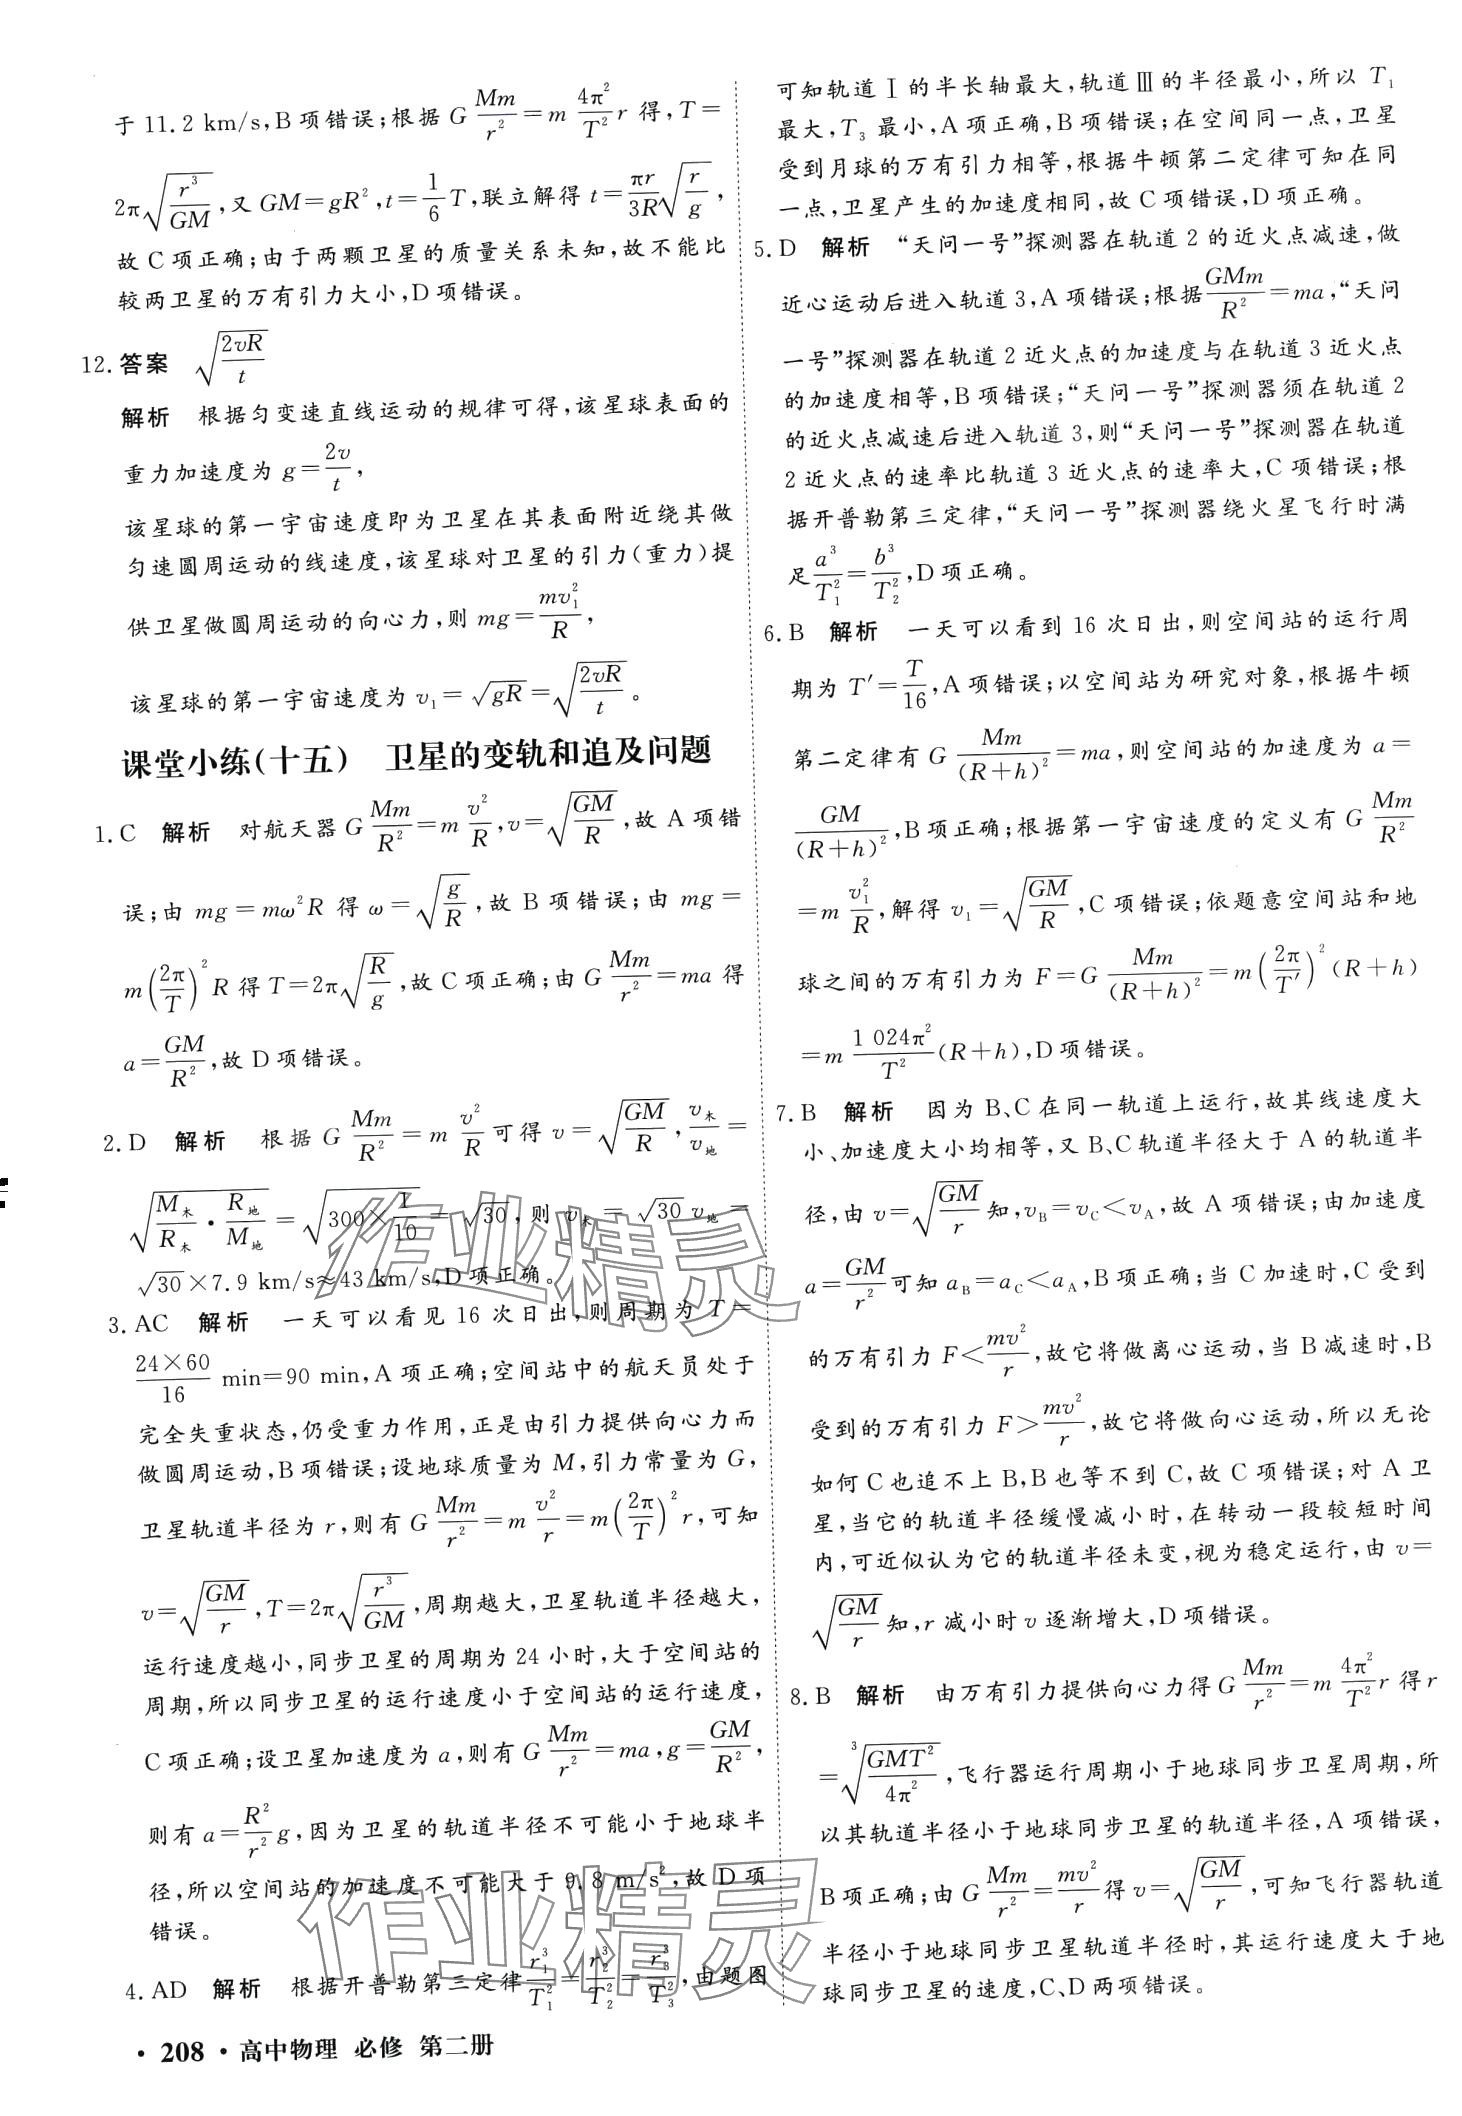 于 11.2 km/s,B 项错误;根据 G Mm/r² = m 4π²/T² r 得,T=
2π√(r³/GM),又 GM=gR²,t=1/6 T,联立解得 t=πr/3R √(r/g),
故 C 项正确;由于两颗卫星的质量关系未知,故不能比
较两卫星的万有引力大小,D 项错误。
12. 答案 √(2vR/t)
解析 根据匀变速直线运动的规律可得,该星球表面的
重力加速度为 g=2v/t,
该星球的第一宇宙速度即为卫星在其表面附近绕其做
匀速圆周运动的线速度,该星球对卫星的引力(重力)提
供卫星做圆周运动的向心力,则 mg=mv₁²/R,
该星球的第一宇宙速度为 v₁=√gR=√(2vR/t)。
课堂小练(十五) 卫星的变轨和追及问题
1. C 解析 对航天器 G Mm/R² = m v²/R,v=√(GM/R),故 A 项错
误;由 mg=mω²R 得 ω=√(g/R),故 B 项错误;由 mg=
m(2π/T)²R 得 T=2π√(R/g),故 C 项正确;由 G Mm/r² = ma 得
a=GM/R²,故 D 项错误。
2. D 解析 根据 G Mm/R² = m v²/R 可得 v=√(GM/R),v木/v地=
√(M木/R木 · R地/M地)=√(300×1/10)=√30,则 v木=√30 v地=
√30×7.9 km/s≈43 km/s,D 项正确。
3. AC 解析 一天可以看见 16 次日出,则周期为 T=
24×60/16 min=90 min,A 项正确;空间站中的航天员处于
完全失重状态,仍受重力作用,正是由引力提供向心力而
做圆周运动,B 项错误;设地球质量为 M,引力常量为 G,
卫星轨道半径为 r,则有 G Mm/r² = m v²/r = m(2π/T)²r,可知
v=√(GM/r),T=2π√(r³/GM),周期越大,卫星轨道半径越大,
运行速度越小,同步卫星的周期为 24 小时,大于空间站的
周期,所以同步卫星的运行速度小于空间站的运行速度,
C 项正确;设卫星加速度为 a,则有 G Mm/r² = ma,g=GM/R²,
则有 a=R²/r² g,因为卫星的轨道半径不可能小于地球半
径,所以空间站的加速度不可能大于 9.8 m/s²,故 D 项
错误。
4. AD 解析 根据开普勒第三定律 r₁³/T₁²=r₂³/T₂²=r₃³/T₃²,由题图
可知轨道Ⅰ的半长轴最大,轨道Ⅲ的半径最小,所以 T₁
最大,T₃ 最小,A 项正确,B 项错误;在空间同一点,卫星
受到月球的万有引力相等,根据牛顿第二定律可知在同
一点,卫星产生的加速度相同,故 C 项错误,D 项正确。
5. D 解析 “天问一号”探测器在轨道 2 的近火点减速,做
近心运动后进入轨道 3,A 项错误;根据 GMm/R² = ma,“天问
一号”探测器在轨道 2 近火点的加速度与在轨道 3 近火点
的加速度相等,B 项错误;“天问一号”探测器须在轨道 2
的近火点减速后进入轨道 3,则“天问一号”探测器在轨道
2 近火点的速率比轨道 3 近火点的速率大,C 项错误;根
据开普勒第三定律,“天问一号”探测器绕火星飞行时满
足 a³/T₁²=b³/T₂²,D 项正确。
6. B 解析 一天可以看到 16 次日出,则空间站的运行周
期为 T′=T/16,A 项错误;以空间站为研究对象,根据牛顿
第二定律有 G Mm/(R+h)² = ma,则空间站的加速度为 a=
GM/(R+h)²,B 项正确;根据第一宇宙速度的定义有 G Mm/R²
=m v₁²/R,解得 v₁=√(GM/R),C 项错误;依题意空间站和地
球之间的万有引力为 F=G Mm/(R+h)² = m(2π/T′)²(R+h)
=m 1 024π²/T² (R+h),D 项错误。
7. B 解析 因为 B、C 在同一轨道上运行,故其线速度大
小、加速度大小均相等,又 B、C 轨道半径大于 A 的轨道半
径,由 v=√(GM/r) 知,v_B=v_C<v_A,故 A 项错误;由加速度
a=GM/r² 可知 a_B=a_C<a_A,B 项正确;当 C 加速时,C 受到
的万有引力 F<mv²/r,故它将做离心运动,当 B 减速时,B
受到的万有引力 F>mv²/r,故它将做向心运动,所以无论
如何 C 也追不上 B,B 也等不到 C,故 C 项错误;对 A 卫
星,当它的轨道半径缓慢减小时,在转动一段较短时间
内,可近似认为它的轨道半径未变,视为稳定运行,由 v=
√(GM/r) 知,r 减小时 v 逐渐增大,D 项错误。
8. B 解析 由万有引力提供向心力得 G Mm/r² = m 4π²/T² r 得 r
=∛(GMT²/4π²),飞行器运行周期小于地球同步卫星周期,所
以其轨道半径小于地球同步卫星的轨道半径,A 项错误,
B 项正确;由 G Mm/r² = mv²/r 得 v=√(GM/r),可知飞行器轨道
半径小于地球同步卫星轨道半径时,其运行速度大于地
球同步卫星的速度,C、D 两项错误。
作业精灵
作业精灵
· 208 · 高中物理 必修 第二册